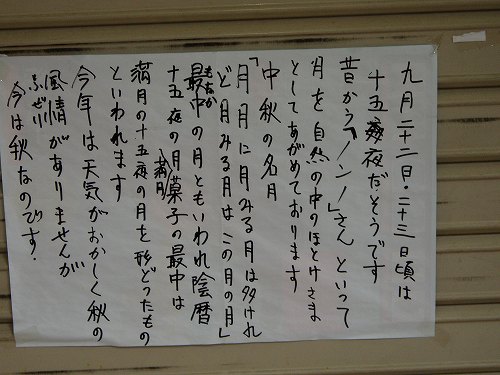 九月二十二日・二十三日頃は
十五夜だそうです
昔から「ノンノ」さんといって
月を自然の中のほとけさま
としてあがめております
中秋の名月
「月月に月みる月は多けれ
ど月みる月はこの月の月」
最中の月ともいわれ陰暦
もなか
十五夜の月菓子の最中は
満月
満月の十五夜の月を形どったもの
といわれます
今年は天気がおかしく秋の
風情がありませんが
ふぜい
今は秋なのです.